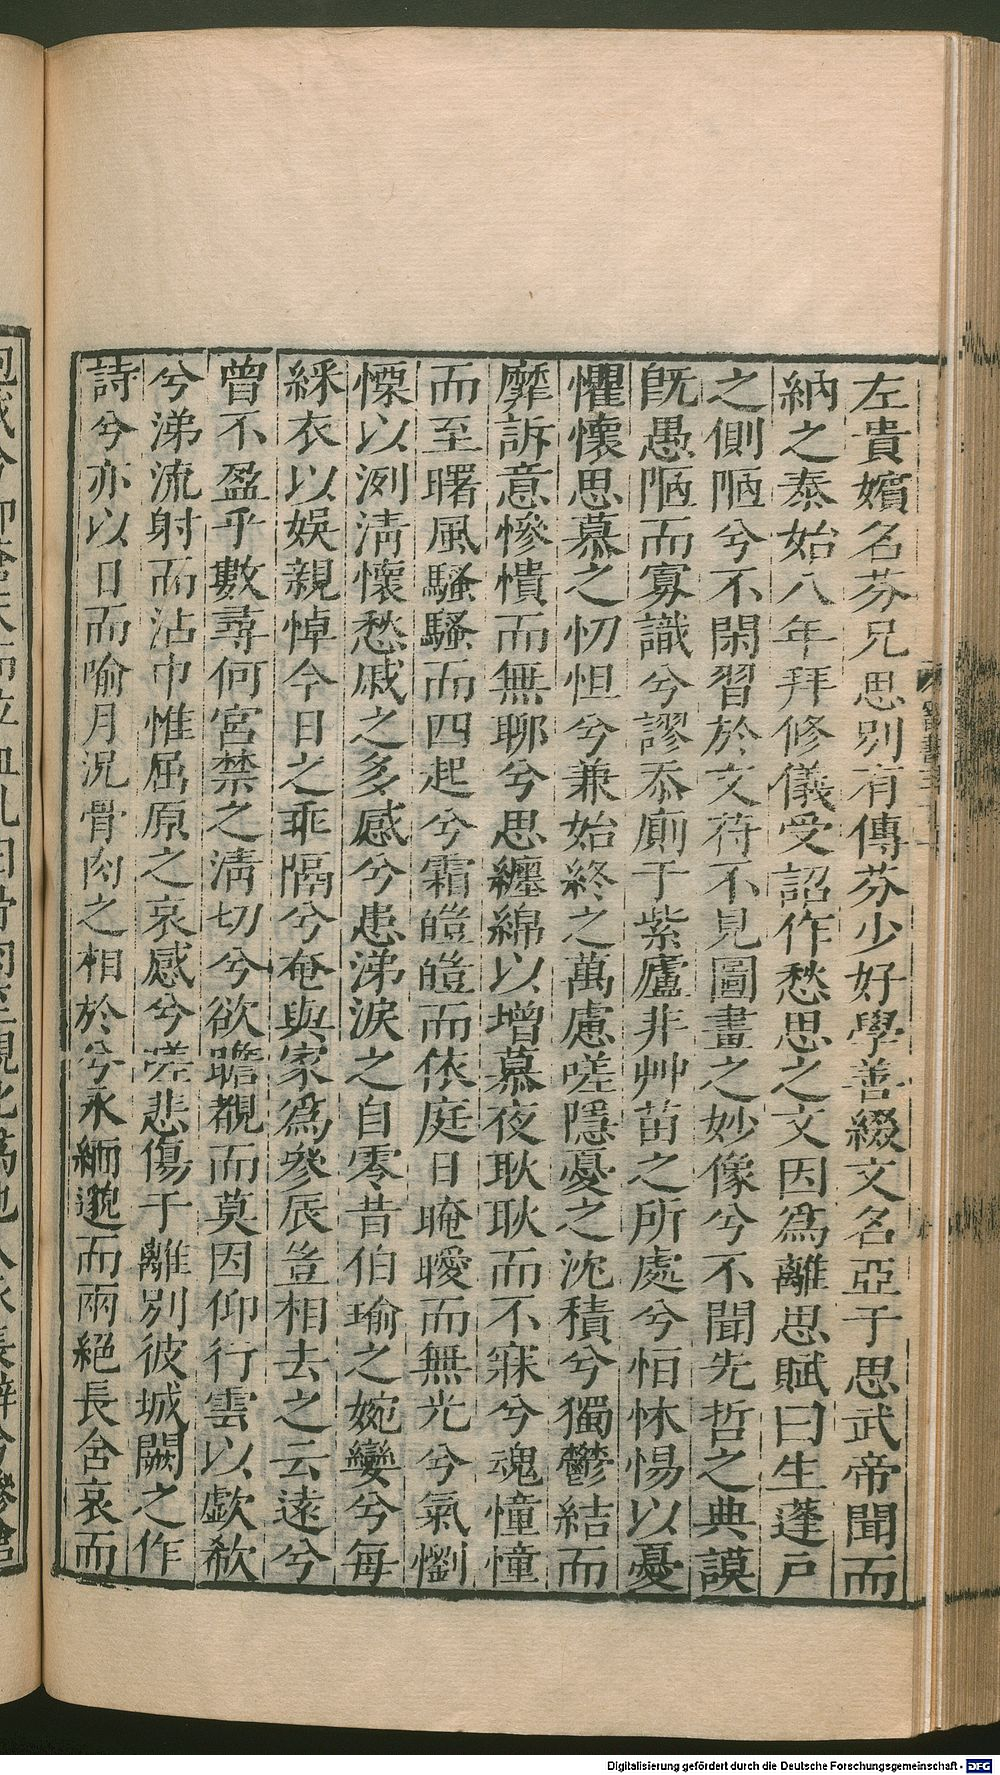 左貴嬪名芬兄思別有傳芬少好學善綴文名亞于思武帝聞而
納之泰始八年拜修儀受詔作愁思之文因爲離思賦曰生蓬戶
之側陋兮不閑習於文符不見圖畫之妙像兮不聞先哲之典謨
旣愚陋而寡識兮謬忝廁于紫廬非艸苗之所處兮怕怵惕以憂
懼懷思慕之忉怛兮兼始終之萬慮嗟隱憂之沈積兮獨鬱結而
靡訴意慘憒而無聊兮思纏綿以增慕夜耿耿而不寐兮魂憧憧
而至曙風騷騷而四起兮霜皚皚而依庭日晻曖而無光兮氣懰
慄以洌淸懷愁戚之多感兮患涕淚之自零昔伯瑜之婉孌兮每
綵衣以娛親悼今日之乖隔兮奄與家爲參辰豈相去之云遠兮
曾不盈乎數尋何宮禁之淸切兮欲瞻覩而莫因仰行雲以歔欷
兮涕流射而沾巾惟屈原之哀感兮嗟悲傷于離別彼城闕之作
詩兮亦以日而喻月況骨肉之相於兮永緬邈而兩絕長含哀而
Digitalisierung gefördert durch die Deutsche Forschungsgemeinschaft - DFG